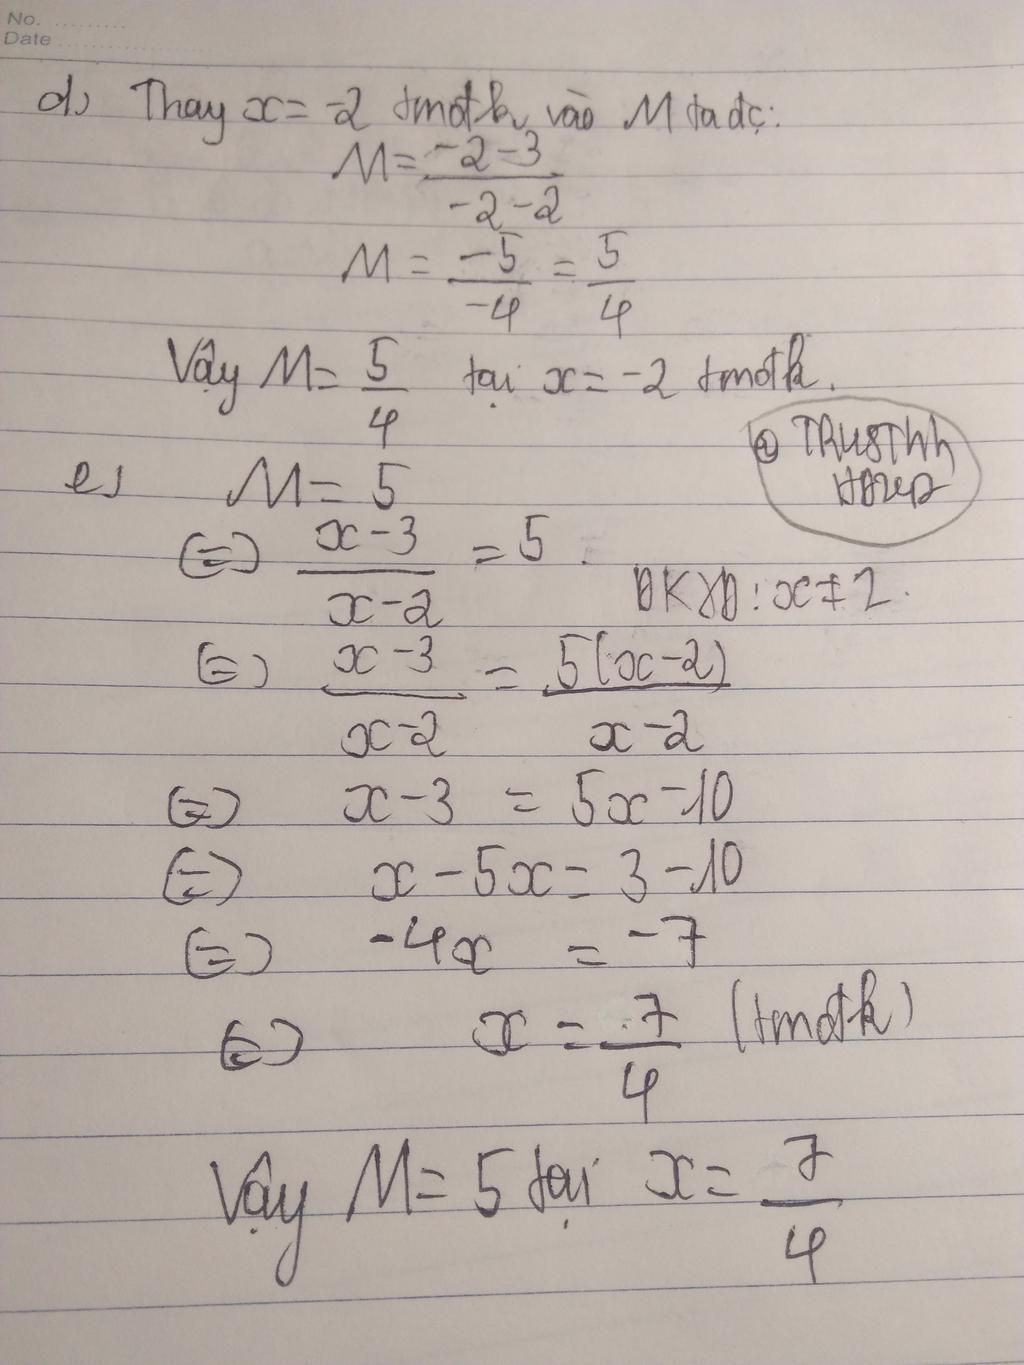 No. .........
Date ....................
d, Thay x = -2 tmđk vào M ta đc:
M = \frac{-2-3}{-2-2}
M = \frac{-5}{-4} = \frac{5}{4}
Vậy M = \frac{5}{4} tại x = -2 tmđk.
e, M = 5
(=) \frac{x-3}{x-2} = 5 ĐKXĐ: x ≠ 2.
(=) \frac{x-3}{x-2} = \frac{5(x-2)}{x-2}
(=) x - 3 = 5x - 10
(=) x - 5x = 3 - 10
(=) -4x = -7
(=) x = \frac{7}{4} (tmđk)
Vậy M = 5 tại x = \frac{7}{4}